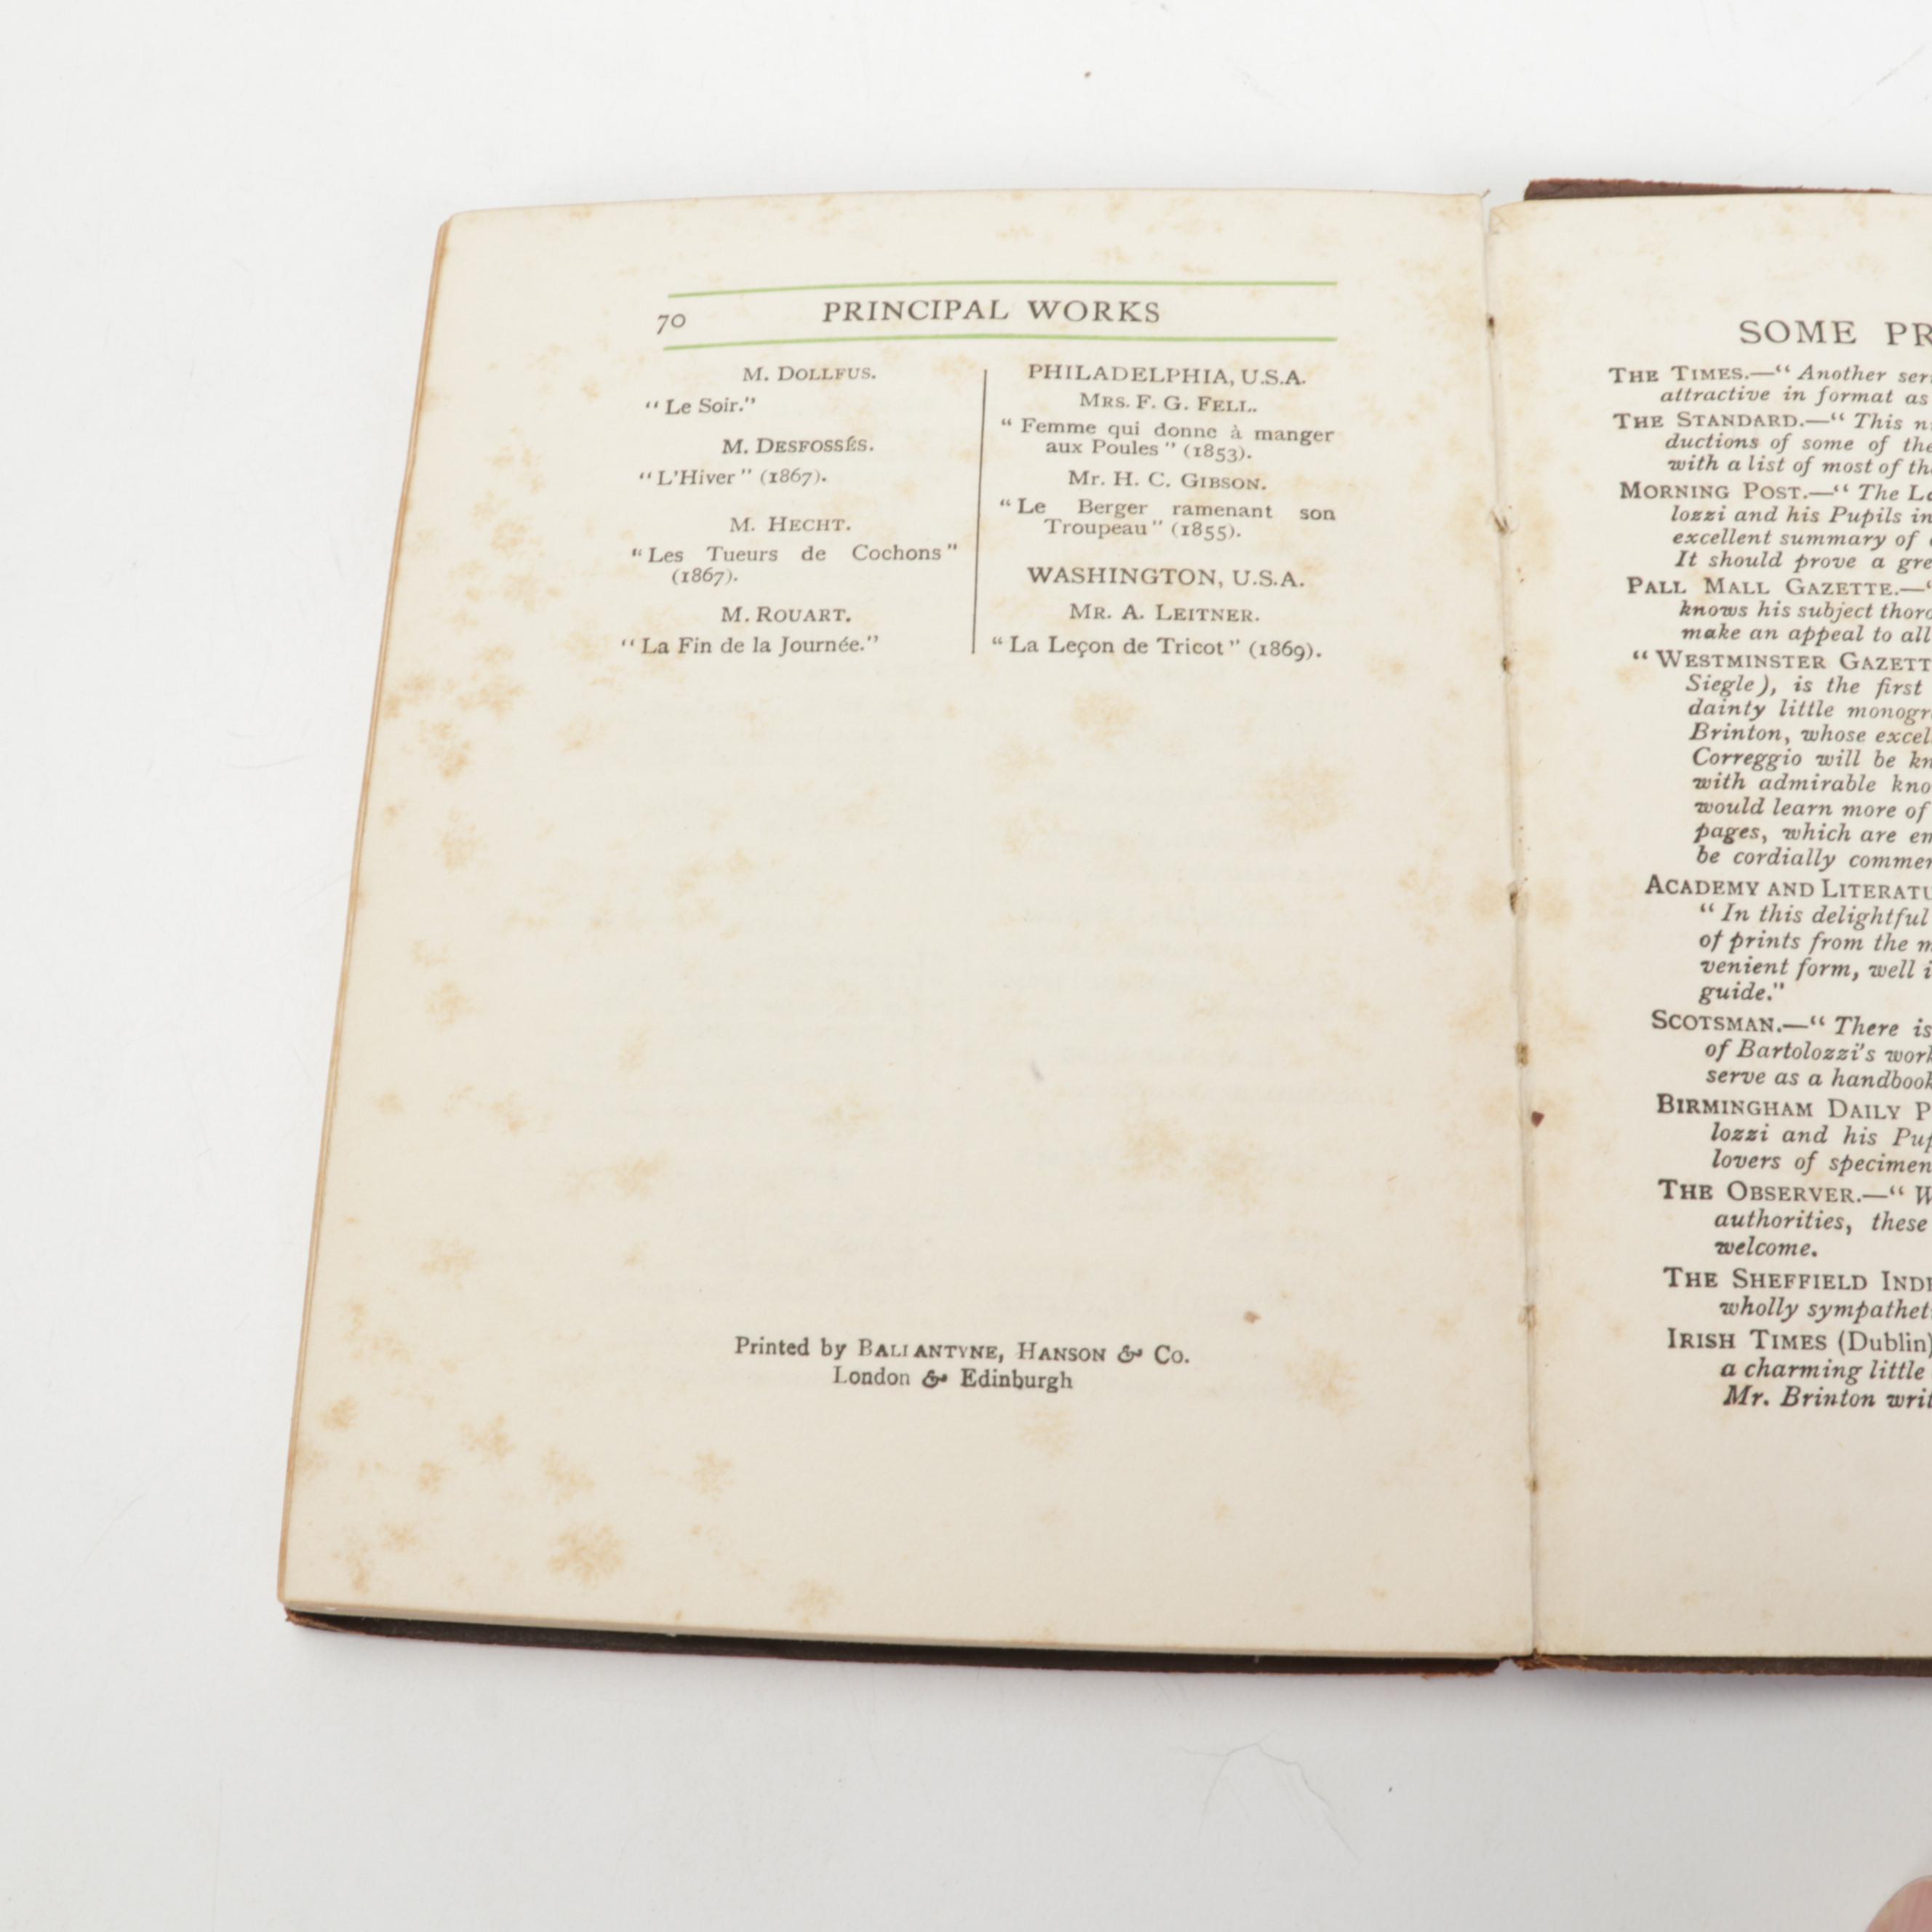 70
PRINCIPAL WORKS
M. DOLLFUS.
“Le Soir.”
M. DESFOSSÉS.
“L'Hiver” (1867).
M. HECHT.
“Les Tueurs de Cochons”
(1867).
M. ROUART.
“La Fin de la Journée.”
PHILADELPHIA, U.S.A.
MRS. F. G. FELL.
“Femme qui donne à manger
aux Poules” (1853).
Mr. H. C. GIBSON.
“Le Berger ramenant son
Troupeau” (1855).
WASHINGTON, U.S.A.
MR. A. LEITNER.
“La Leçon de Tricot” (1869).
Printed by BALLANTYNE, HANSON & Co.
London & Edinburgh
SOME PR
THE TIMES.—“Another seri
attractive in format as
THE STANDARD.—“This n
ductions of some of the
with a list of most of th
MORNING POST.—“The L
lozzi and his Pupils in
excellent summary of
It should prove a gre
PALL MALL GAZETTE.—“
knows his subject thoro
make an appeal to all
“WESTMINSTER GAZETT
Siegle), is the first
dainty little monogr
Brinton, whose excel
Correggio will be kn
with admirable kno
would learn more of
pages, which are en
be cordially commen
ACADEMY AND LITERATU
“In this delightful
of prints from the m
venient form, well i
guide.”
SCOTSMAN.—“There is
of Bartolozzi's work
serve as a handbook
BIRMINGHAM DAILY P
lozzi and his Pup
lovers of specimen
THE OBSERVER.—“W
authorities, these
welcome.
THE SHEFFIELD INDE
wholly sympathet
IRISH TIMES (Dublin)
a charming little
Mr. Brinton writ